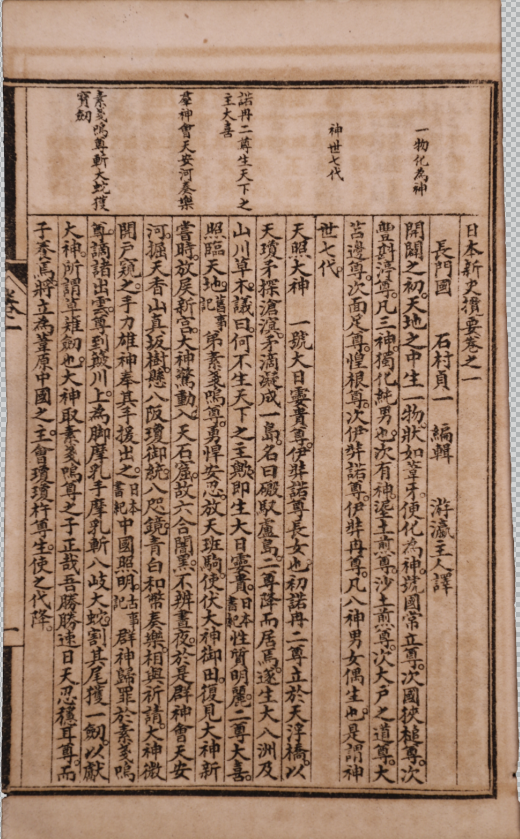 一物化為神
神世七代
諾冉二尊生天下之
主大喜
羣神會天安河奏樂
素戔嗚尊斬大蛇獲
寶劔
日本新史攬要卷之一
長門國 石村貞一 編輯 游瀛主人譯
開闢之初。天地之中生一物。狀如葦牙。便化為神。號國常立尊。次國狹槌尊。次
豐斟渟尊。凡三神。獨化純男也。次有神。埿土煑尊。沙土煑尊。次大戶之道尊。大
苫邊尊。次面足尊。惶根尊。次伊弉諾尊。伊弉冉尊。凡八神男女偶生也。是謂神
世七代。
天照大神 一號大日孁貴尊。伊弉諾尊長女也。初諾冉二尊立於天浮橋。以
天瓊矛探滄溟。矛滴凝成一島。名曰磤馭盧島。二尊降而居焉。遂生大八洲及
山川草木。議曰。何不生天下之主歟。即生大日孁貴。日本書紀性質明麗。二尊大喜。
照臨天地。舊事記弟素戔嗚尊勇悍安忍。放天班駒。使伏大神御田。復見大神新
嘗時。放屎新宮。大神驚動。入天石窟。故六合闇黑。不辨晝夜。於是群神會天安
河。掘天香山真坂樹。懸八阪瓊御統八咫鏡青白和幣奏樂。相與祈請。大神微
開戶窺之。手力雄神奉其手援出之。日本書紀中國照明。古事記群神歸罪於素戔嗚
尊。謫諸出雲。尊到簸川上。為脚摩乳手摩乳斬八岐大蛇。割其尾獲一劔。以獻
大神。所謂草薙劔也。大神取素戔嗚尊之子正哉吾勝勝速日天忍穗耳尊。而
子养焉。將立為葦原中國之主。會瓊瓊杵尊生。使之代降。
卷一
一